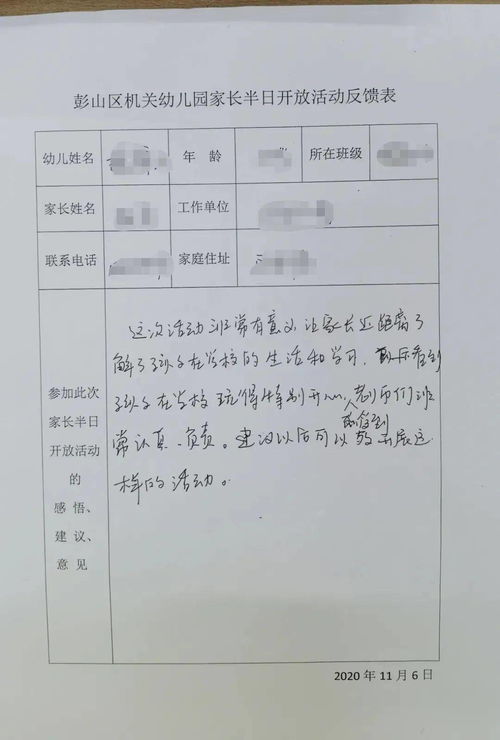 彭山区机关幼儿园家长半日开放活动反馈表
幼儿姓名 年 龄 所在班级
家长姓名 工作单位
联系电话 家庭住址
参加此次
家长半日
开放活动
的
感 悟、
建 议、
意 见
这次活动非常有意义,让家长近距离了
解了孩子在学校的生活和学习,看到
孩子在学校玩得特别开心,老师们非
常认真、负责。建议以后可以多开展这
样的活动。
2020 年 11 月 6 日